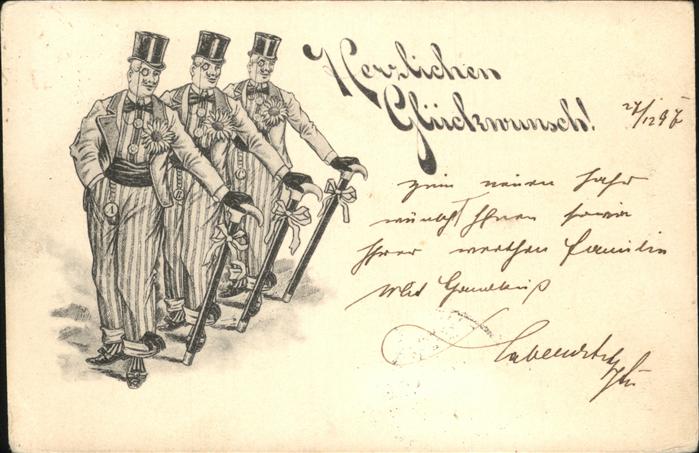 Herzlichen
Glückwunsch!
27/12 97
zum neuen Jahr
wünscht Ihnen sowie
Ihrer werthen Familie